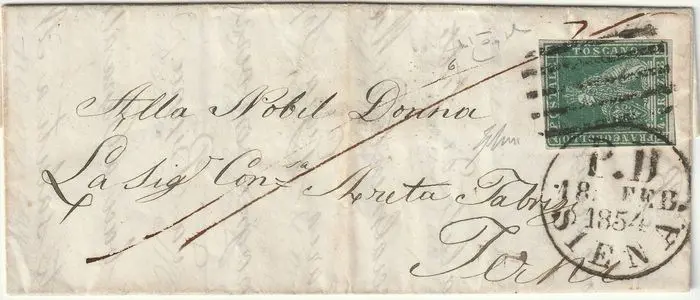 TOSCANO
POSTALE
FRANCOBOLLO
Alla Nobil Donna
La Sig.ʳ Con.ˢᵃ Areta Fabrizi
Terni
P.D
18. FEB.
1854
SIENA